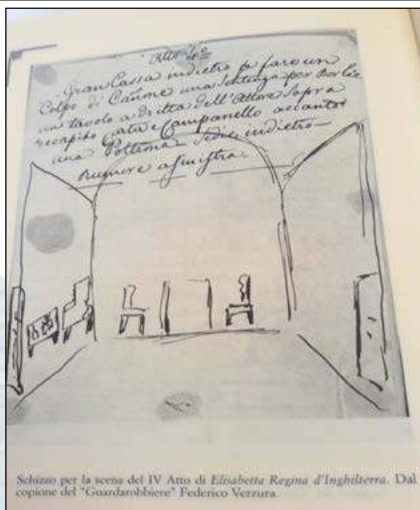 Atto IV
Gran Cassa indietro p fare un
Colpo di Canone una sentenza per Borlié
un tavolo a dritta dell'Attore sopra
recapito carta e Campanello accanto
una Poltrona Sedie indietro
rumore a sinistra.
Schizzo per la scena del IV Atto di Elisabetta Regina d'Inghilterra. Dal
copione del "Guardarobbiere" Federico Verzura.